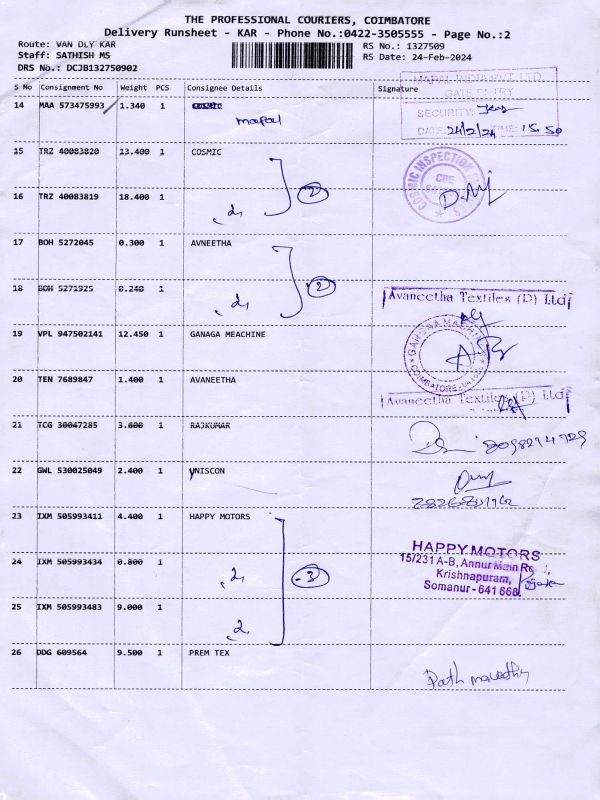 THE PROFESSIONAL COURIERS, COIMBATORE
Delivery Runsheet - KAR - Phone No.:0422-3505555 - Page No.:2
Route: VAN DLY KAR
Staff: SATHISH MS
DRS No.: DCJB132750902
RS No.: 1327509
RS Date: 24-Feb-2024
S No Consignment No Weight PCS Consignee Details Signature
14 MAA 573475993 1.340 1
mapal
MAPAL INDIA PVT. LTD
GATE ENTRY
SECURITY:
DATE: 24/2/24 TIME: 15.50
15 TRZ 40083820 13.400 1 COSMIC
COSMIC INSPECTION
CBE
16 TRZ 40083819 18.400 1
2
17 BOH 5272045 0.300 1 AVNEETHA
2
18 BOH 5271925 0.240 1
Avaneetha Textiles (P) Ltd
19 VPL 947502141 12.450 1 GANAGA MEACHINE
COIMBATORE
20 TEN 7689847 1.400 1 AVANEETHA
Avaneetha Textiles (P) Ltd
21 TCG 30047285 3.600 1 RAJKUMAR
22 GWL 530025049 2.400 1 YNISCON
23 IXM 505993411 4.400 1 HAPPY MOTORS
24 IXM 505993434 0.800 1
2 3
HAPPY MOTORS
15/231 A-B, Annur Main Road,
Krishnapuram,
Somanur - 641 668.
25 IXM 505993483 9.000 1
2
26 DDG 609564 9.500 1 PREM TEX